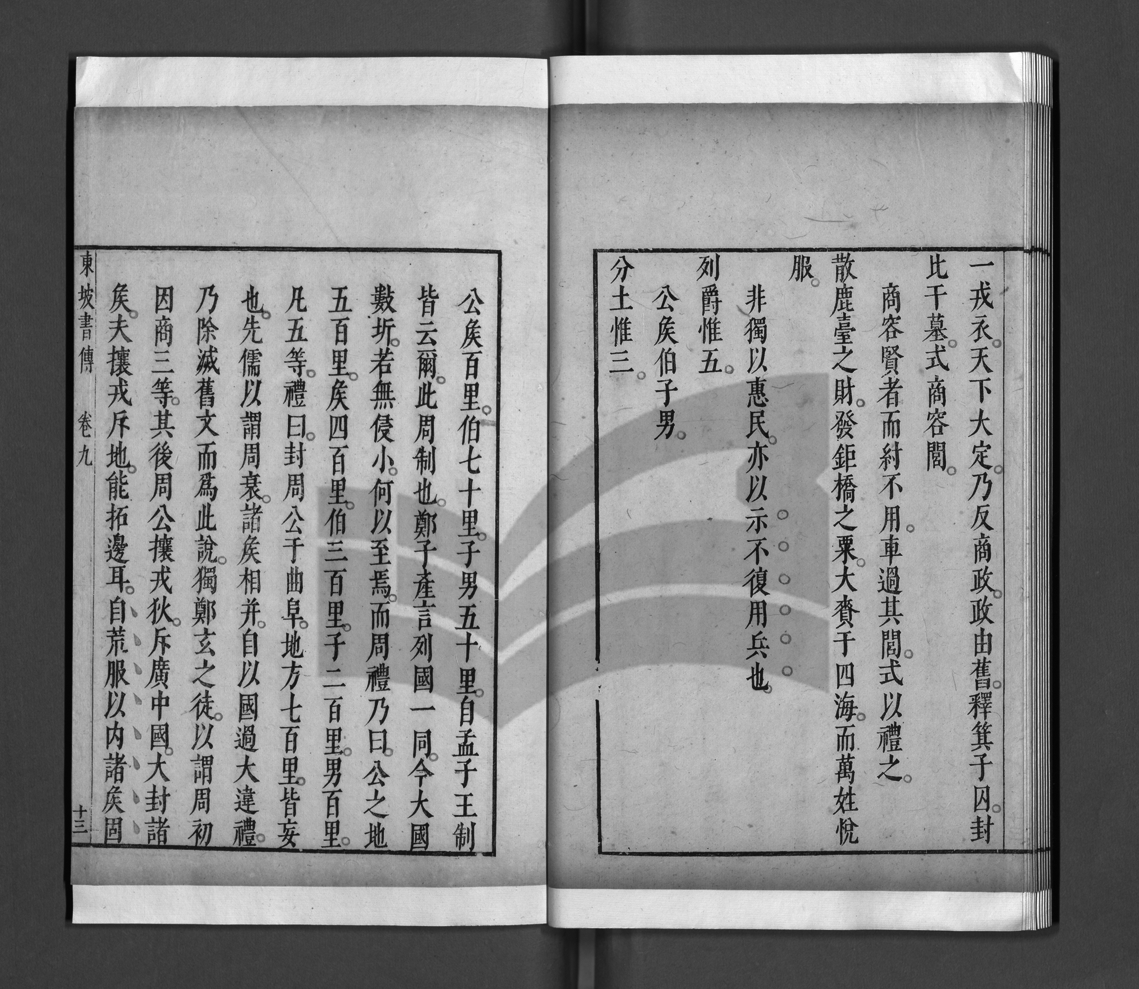 一戎衣。天下大定。乃反商政。政由舊。釋箕子囚。封
比干墓。式商容閭。
商容賢者而紂不用。車過其閭。式以禮之。
散鹿臺之財。發鉅橋之粟。大賚于四海。而萬姓悅
服。
非獨以惠民。亦以示不復用兵也。
列爵惟五。
公矦伯子男。
分土惟三。
公矦百里。伯七十里。子男五十里。自孟子王制
皆云爾。此周制也。鄭子產言列國一同。今大國
數圻。若無侵小。何以至焉。而周禮乃曰。公之地
五百里。矦四百里。伯三百里。子二百里。男百里。
凡五等。禮曰。封周公于曲阜。地方七百里。皆妄
也。先儒以謂周衰。諸矦相并。自以國過大違禮。
乃除滅舊文而爲此說。獨鄭玄之徒。以謂周初
因商三等。其後周公攘戎狄。斥廣中國。大封諸
矦。夫攘戎斥地。能拓邊耳。自荒服以内諸矦固
東坡書傳 卷九 十三